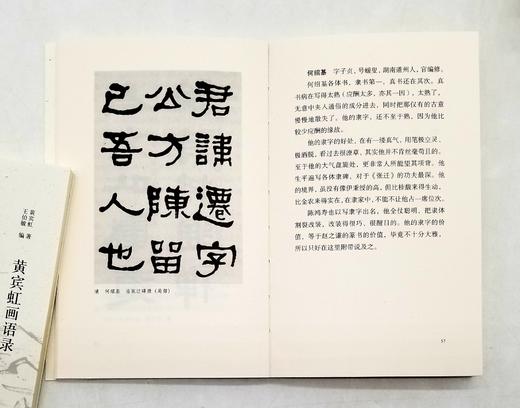 君讳迁字
公方陈留
已吾人也
清 何绍基 临张迁碑册(局部)
何绍基 字子贞,号蝯叟,湖南道州人,官编修。
何绍基各体书,隶书第一,真书还在其次。真
书病在写得太熟(应酬太多,亦其一因),太熟了,
无意中夹入通俗的成分进去,同时把那仅有的古意
慢慢地散失了。他的隶字,还不至于熟,因为他比
较少应酬的缘故。
他的隶字的好处,在有一缕真气,用笔极空灵、
极洒脱,看过去很潦草,其实他并不肯丝毫苟且的。
至于他的大气盘旋处,更非常人所能望其项背。他
生平遍写各体隶碑,对于《张迁》的功夫最深。他
的境界,虽没有像伊秉绶的高,但比桂馥来得生动,
比金农来得实在,在隶家中,不能不让他占一席位次。
陈鸿寿也以写隶字出名,他全仗聪明,把隶体
割裂改装,改装得很巧、很醒目。他的隶字的价
值,等于赵之谦的篆书的价值,毕竟不十分大雅,
所以只好在这里附带说及之。
57
黄宾虹 著
王伯敏 编
黄宾虹画语录